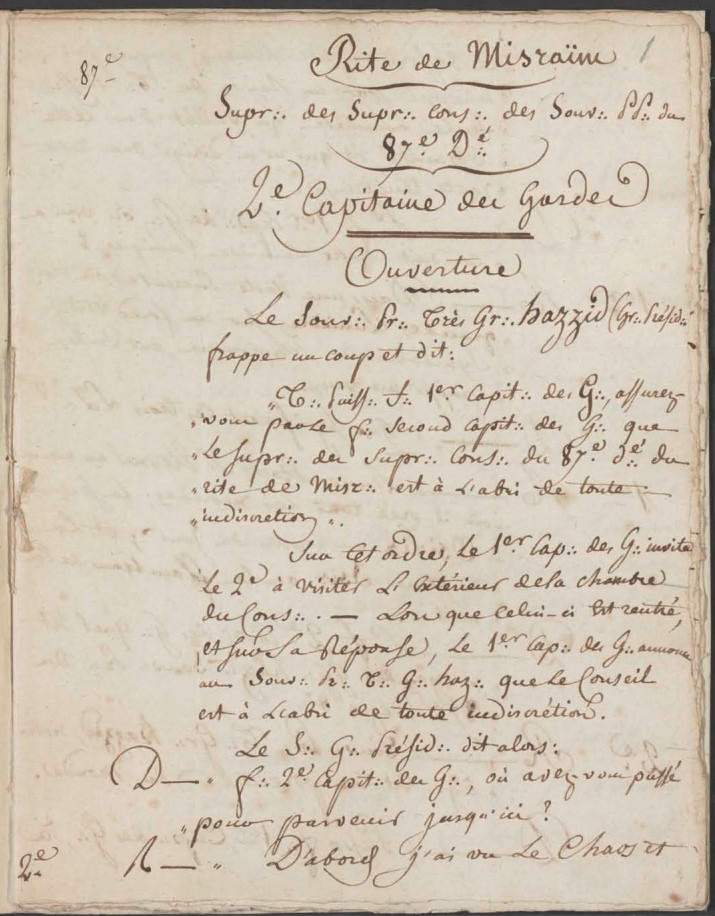 87e
1
Rite de Misraïm
Supr∴ des Supr∴ Cons∴ des Souv∴ PP∴ du
87e Dé∴
2e Capitaine des Gardes
Ouverture
Le Souv∴ Pr∴ Très Gr∴ hazzid (Gr∴ Présid∴
frappe un coup et dit:
"T∴ Puiss∴ f∴ 1er Capit∴ des G∴, assurez-
"vous par le f∴ second Capit∴ des G∴ que
"Le Supr∴ des Supr∴ Cons∴ du 87e dé∴ du
"rite de Misr∴ est à l'abri de toute
"indiscretion".
Sur cet ordre, Le 1er Cap∴ des G∴ invite
Le 2e à visiter L'Extérieur de la chambre
du Cons∴. — Lors que celui-ci Est rentré,
et sur Sa Réponse, Le 1er Cap∴ des G∴ annonce
au Souv∴ Pr∴ T∴ G∴ haz∴ que Le Conseil
est à L'abri de toute indiscrétion.
Le S∴ G∴ Présid∴ dit alors:
D — " f∴ 2e Capit∴ des G∴, où avez-vous passé
"pour parvenir jusqu'ici?
2e R — " D'abord j'ai vu Le Chaos et